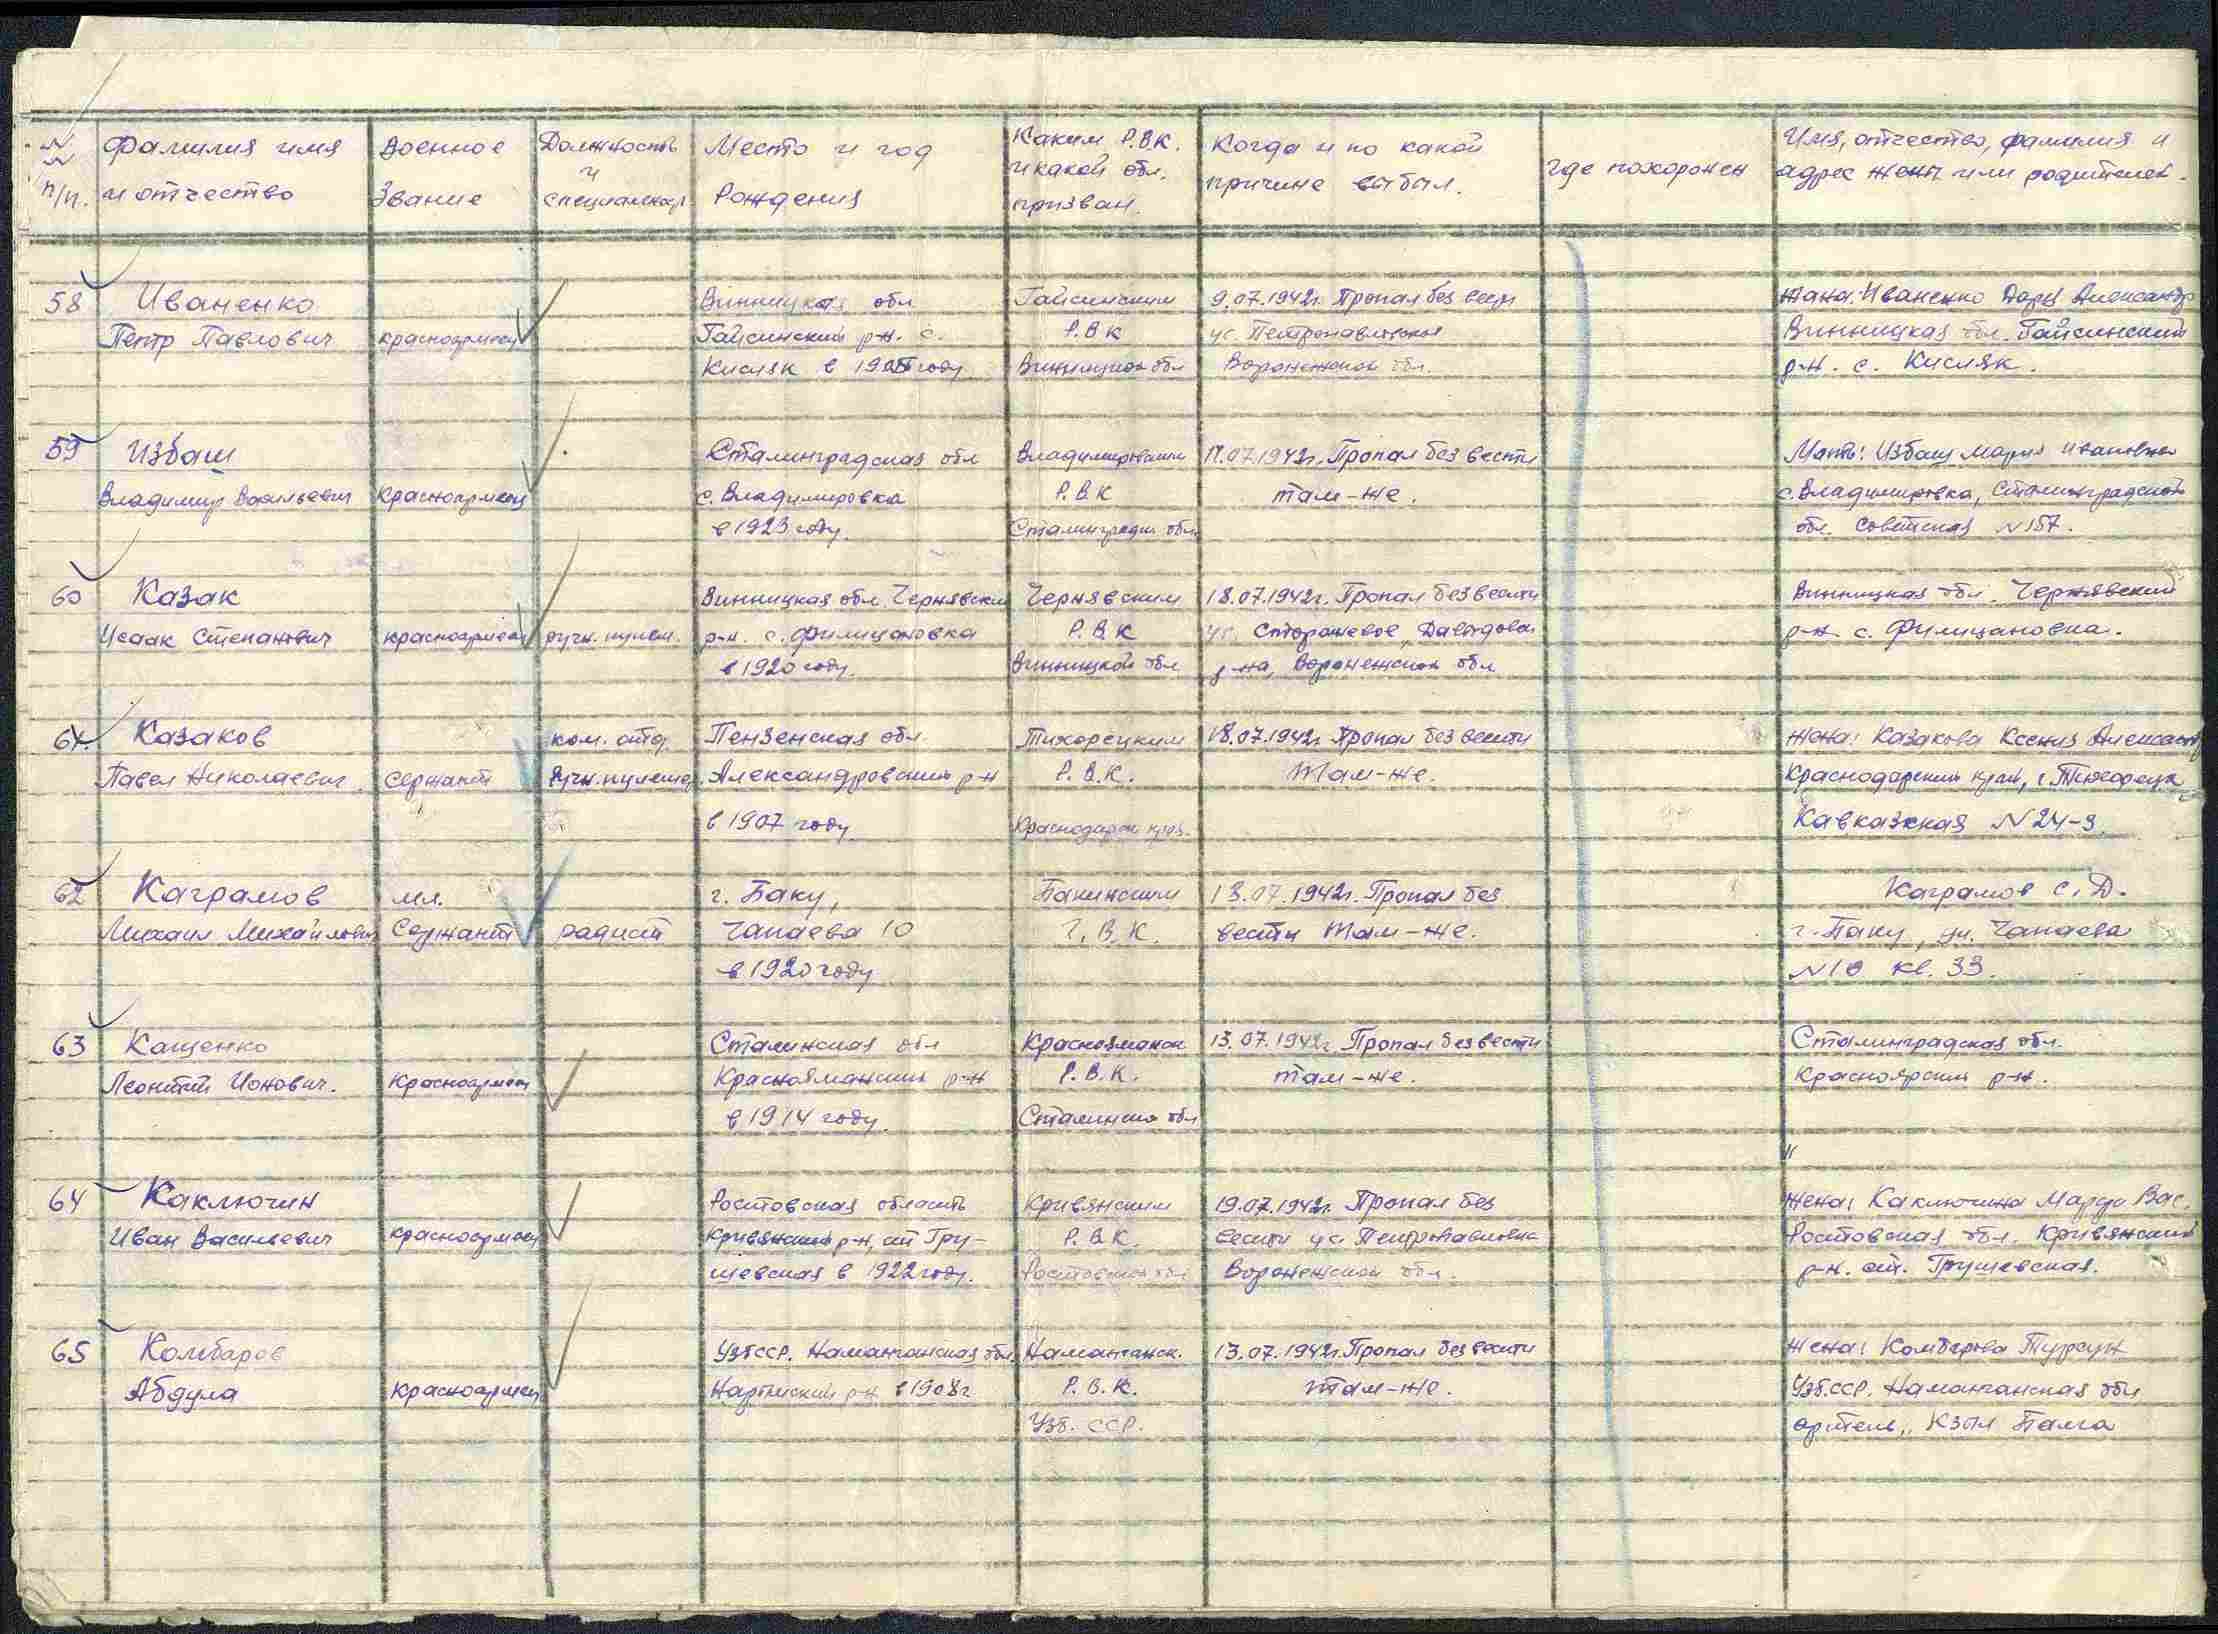 №№ п/п.
Фамилия имя
и отчество
Военное
Звание
Должность
и
специальнос.
Место и год
Рождения
Каким Р.В.К.
и какой обл.
призван.
Когда и по какой
причине выбыл.
где похоронен
Имя, отчество, фамилия и
адрес жены или родителей.
58
Иваненко
Петр Павлович
красноармеец
Винницкая обл
Гайсинский р-н. с.
Кисляк в году
Гайсинским
Р.В.К
Винницкой обл
9.07.1942г. Пропал без вести
ус. Петропавловское
Воронежской обл.
жена: Иваненко Дарья Александр
Винницкая обл. Гайсинский
р-н. с. Кисляк.
59
Избаш
Владимир Васильевич
красноармеец
Сталинградская обл
с. Владимировка
в 1923 году.
Владимировским
Р.В.К
Сталинградск обл
17.07.1942г. Пропал без вести
там-же.
Мать: Избаш Мария Ивановна
с. Владимировка, Сталинградской
обл. Советская №157.
60
Казак
Исаак Степанович
красноармеец
ручн. пулем.
Винницкая обл. Чернявский
р-н. с. Филицановка
в 1920 году.
Чернявским
Р.В.К
Винницкой обл
18.07.1942г. Пропал без вести
ус. Сторожевое, Давыдовск
р-на, Воронежской обл
Винницкая обл. Чернявский
р-н с. Филицановка.
61
Казаков
Павел Николаевич
Сержант
ком. отд.
ручн. пулемет.
Пензенская обл
Александровский р-н
в 1907 году
Тихорецким
Р.В.К.
Краснодарск края.
18.07.1942г. Пропал без вести
там-же.
жена: Казакова Ксения Александ
Краснодарский край, г. Тихорецк
Кавказская №24-а
62
Каграмов
Михаил Михайлович
мл.
Сержант
радист
г. Баку,
Чапаева 10
в 1920 году
Бакинским
Г.В.К.
13.07.1942г. Пропал без
вести там-же.
Каграмов С.Д.
г. Баку, ул. Чапаева
№10 кв. 33.
63
Кащенко
Леонтий Ионович.
красноармеец
Сталинская обл
Краснолиманский р-н
в 1914 году.
Краснолиманск
Р.В.К.
Сталинской обл
13.07.1942г. Пропал без вести
там-же.
Сталинградская обл.
Красноярский р-н.
"
64
Каключин
Иван Васильевич
красноармеец
Ростовская область
Кривянский р-н, ст Гру-
шевская в 1922 году.
Кривянским
Р.В.К.
Ростовской обл
19.07.1942г. Пропал без
вести ус. Петропавловка
Воронежской обл.
жена: Каключина Марфа Вас.
Ростовская обл. Кривянский
р-н. ст. Грушевская.
65
Комбаров
Абдула
красноармеец
УзбССР. Наманганская обл.
р-н в 1908г
Наманганск.
Р.В.К.
Узб. ССР.
13.07.1942г. Пропал без вести
там-же.
жена: Комбарова Турсун
Узб.ССР. Наманганская обл
артель „ Кзыл